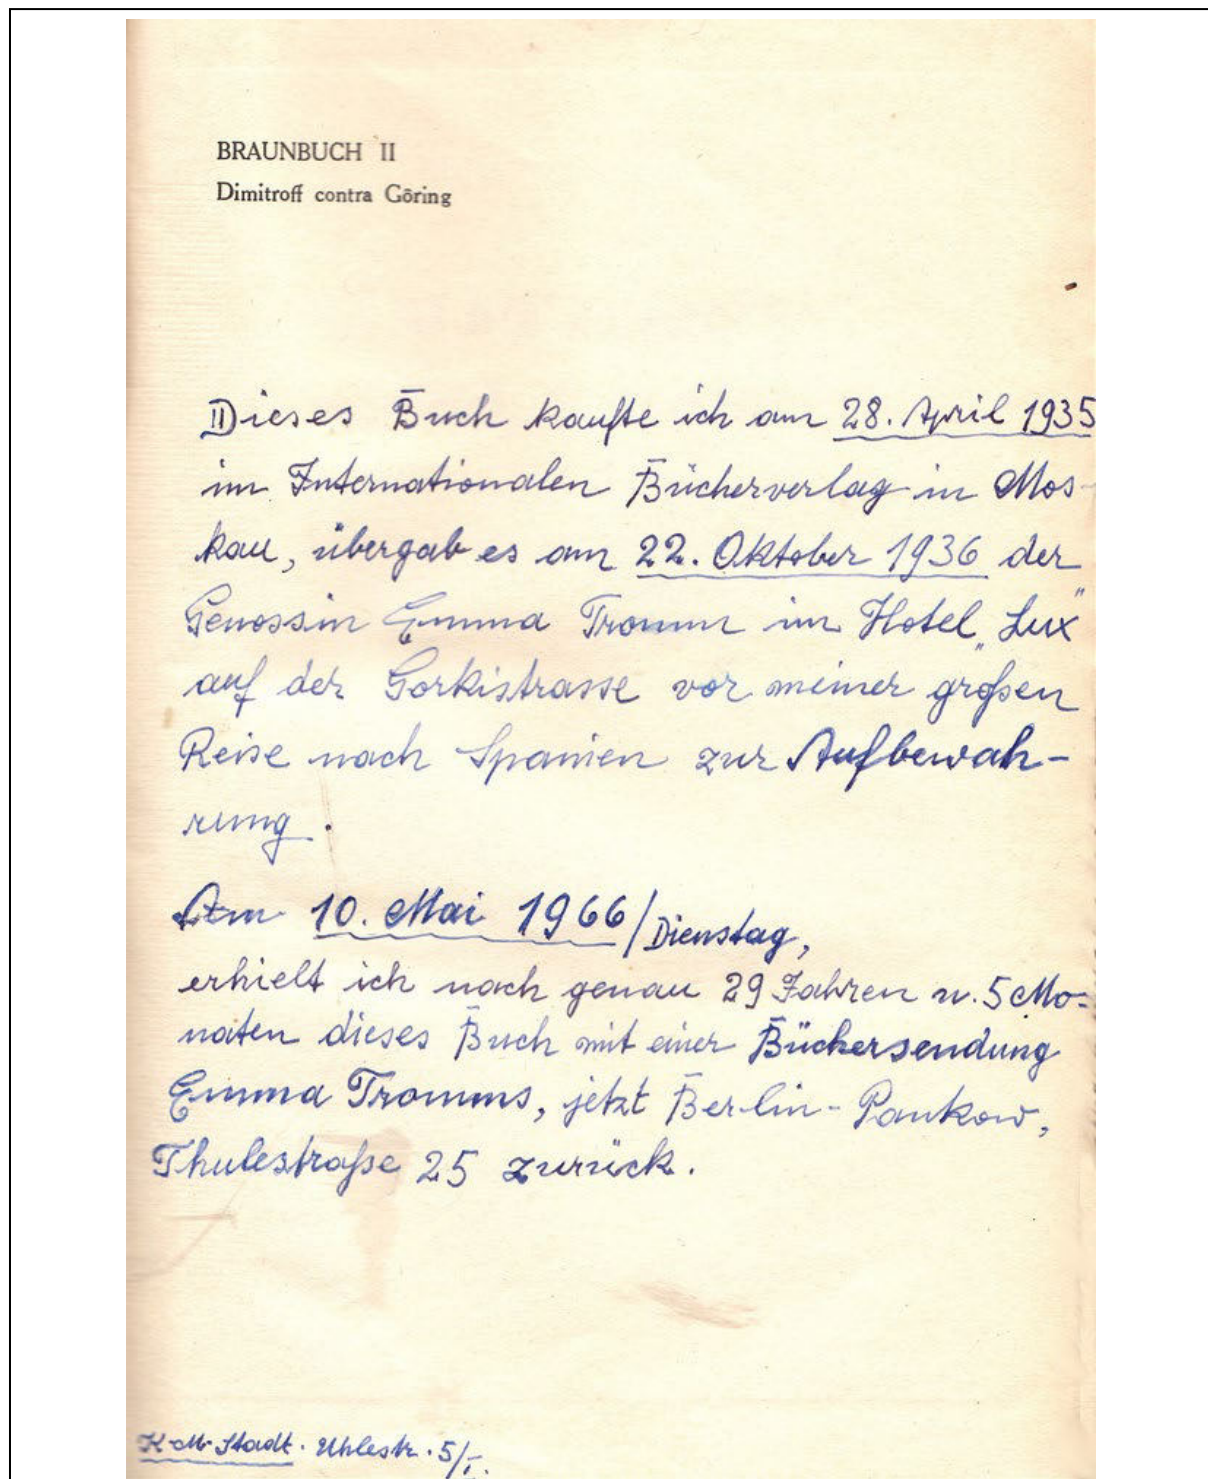 BRAUNBUCH II
Dimitroff contra Göring
Dieses Buch kaufte ich am 28. April 1935
im Internationalen Bücherverlag in Mos-
kau, übergab es am 22. Oktober 1936 der
Genossin Emma Tromm im Hotel „Lux"
auf der Gorkistrasse vor meiner großen
Reise nach Spanien zur Aufbewah-
rung.
Am 10. Mai 1966/Dienstag,
erhielt ich nach genau 29 Jahren u. 5 Mo=
naten dieses Buch mit einer Büchersendung
Emma Tromms, jetzt Berlin-Pankow,
Thulestraße 25 zurück.
K-M-Stadt. Uhlestr. 5/I.